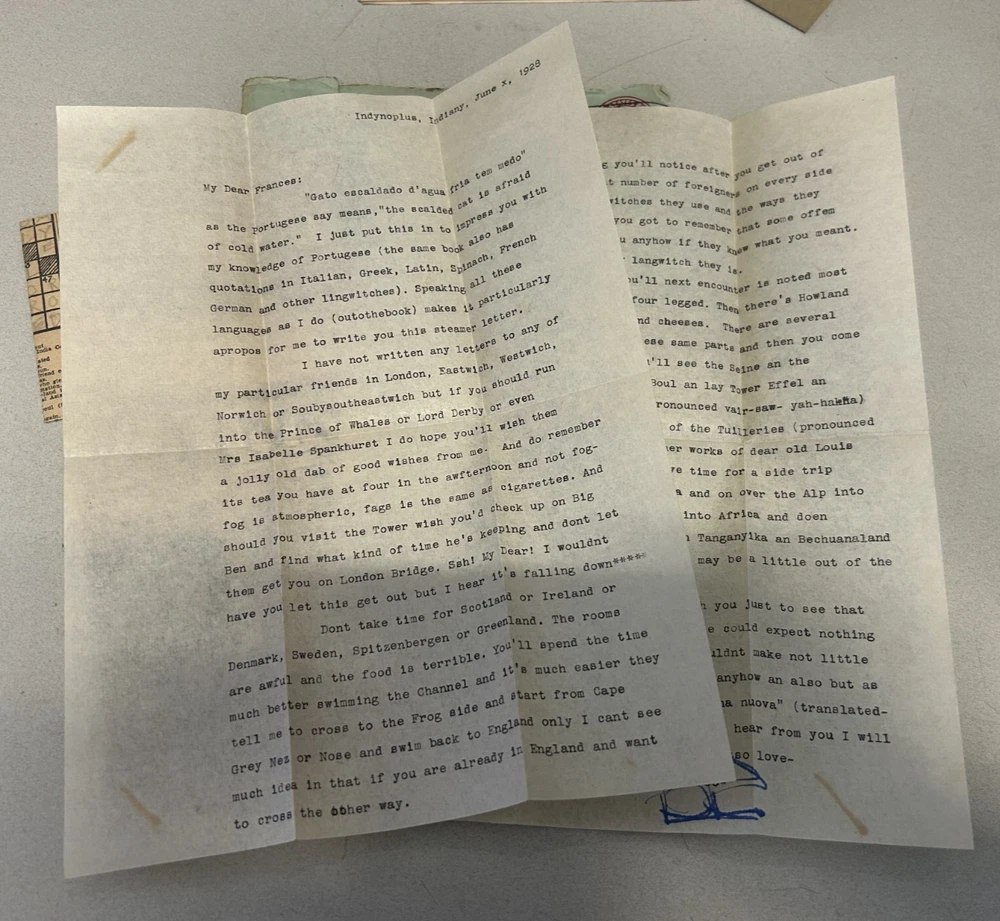 Indynoplus, Indiany, June x, 1928
My Dear Frances:
"Gato escaldado d'agua fria tem medo"
as the Portugese say means,"the scalded cat is afraid
of cold water." I just put this in to impress you with
my knowledge of Portugese (the same book also has
quotations in Italian, Greek, Latin, Spinach, French
German and other lingwitches). Speaking all these
languages as I do (outothebook) makes it particularly
apropos for me to write you this steamer letter.
I have not written any letters to any of
my particular friends in London, Eastwich, Westwich,
Norwich or Soubysoutheastwich but if you should run
into the Prince of Whales or Lord Derby or even
Mrs Isabelle Spankhurst I do hope you'll wish them
a jolly old dab of good wishes from me. And do remember
its tea you have at four in the awfternoon and not fog-
fog is atmospheric, fags is the same as cigarettes. And
should you visit the Tower wish you'd check up on Big
Ben and find what kind of time he's keeping and dont let
them get you on London Bridge. Ssh! My Dear! I wouldnt
have you let this get out but I hear it's falling down*****
Dont take time for Scotland or Ireland or
Denmark, Sweden, Spitzenbergen or Greenland. The rooms
are awful and the food is terrible. You'll spend the time
much better swimming the Channel and it's much easier they
tell me to cross to the Frog side and start from Cape
Grey Nez or Nose and swim back to England only I cant see
much idea in that if you are already in England and want
to cross the other way.
you'll notice after you get out of
number of foreigners on every side
witches they use and the ways they
you got to remember that some offem
anyhow if they knew what you meant.
langwitch they is.
you'll next encounter is noted most
four legged. Then there's Howland
and cheeses. There are several
these same parts and then you come
you'll see the Seine an the
Boul an lay Tower Effel an
pronounced vair-saw- yah-hahha)
of the Tuilleries (pronounced
works of dear old Louis
time for a side trip
and on over the Alp into
into Africa and doen
Tanganyika an Bechuanaland
may be a little out of the
you just to see that
could expect nothing
make not little
anyhow an also but as
nuova" (translated-
hear from you I will
so love-